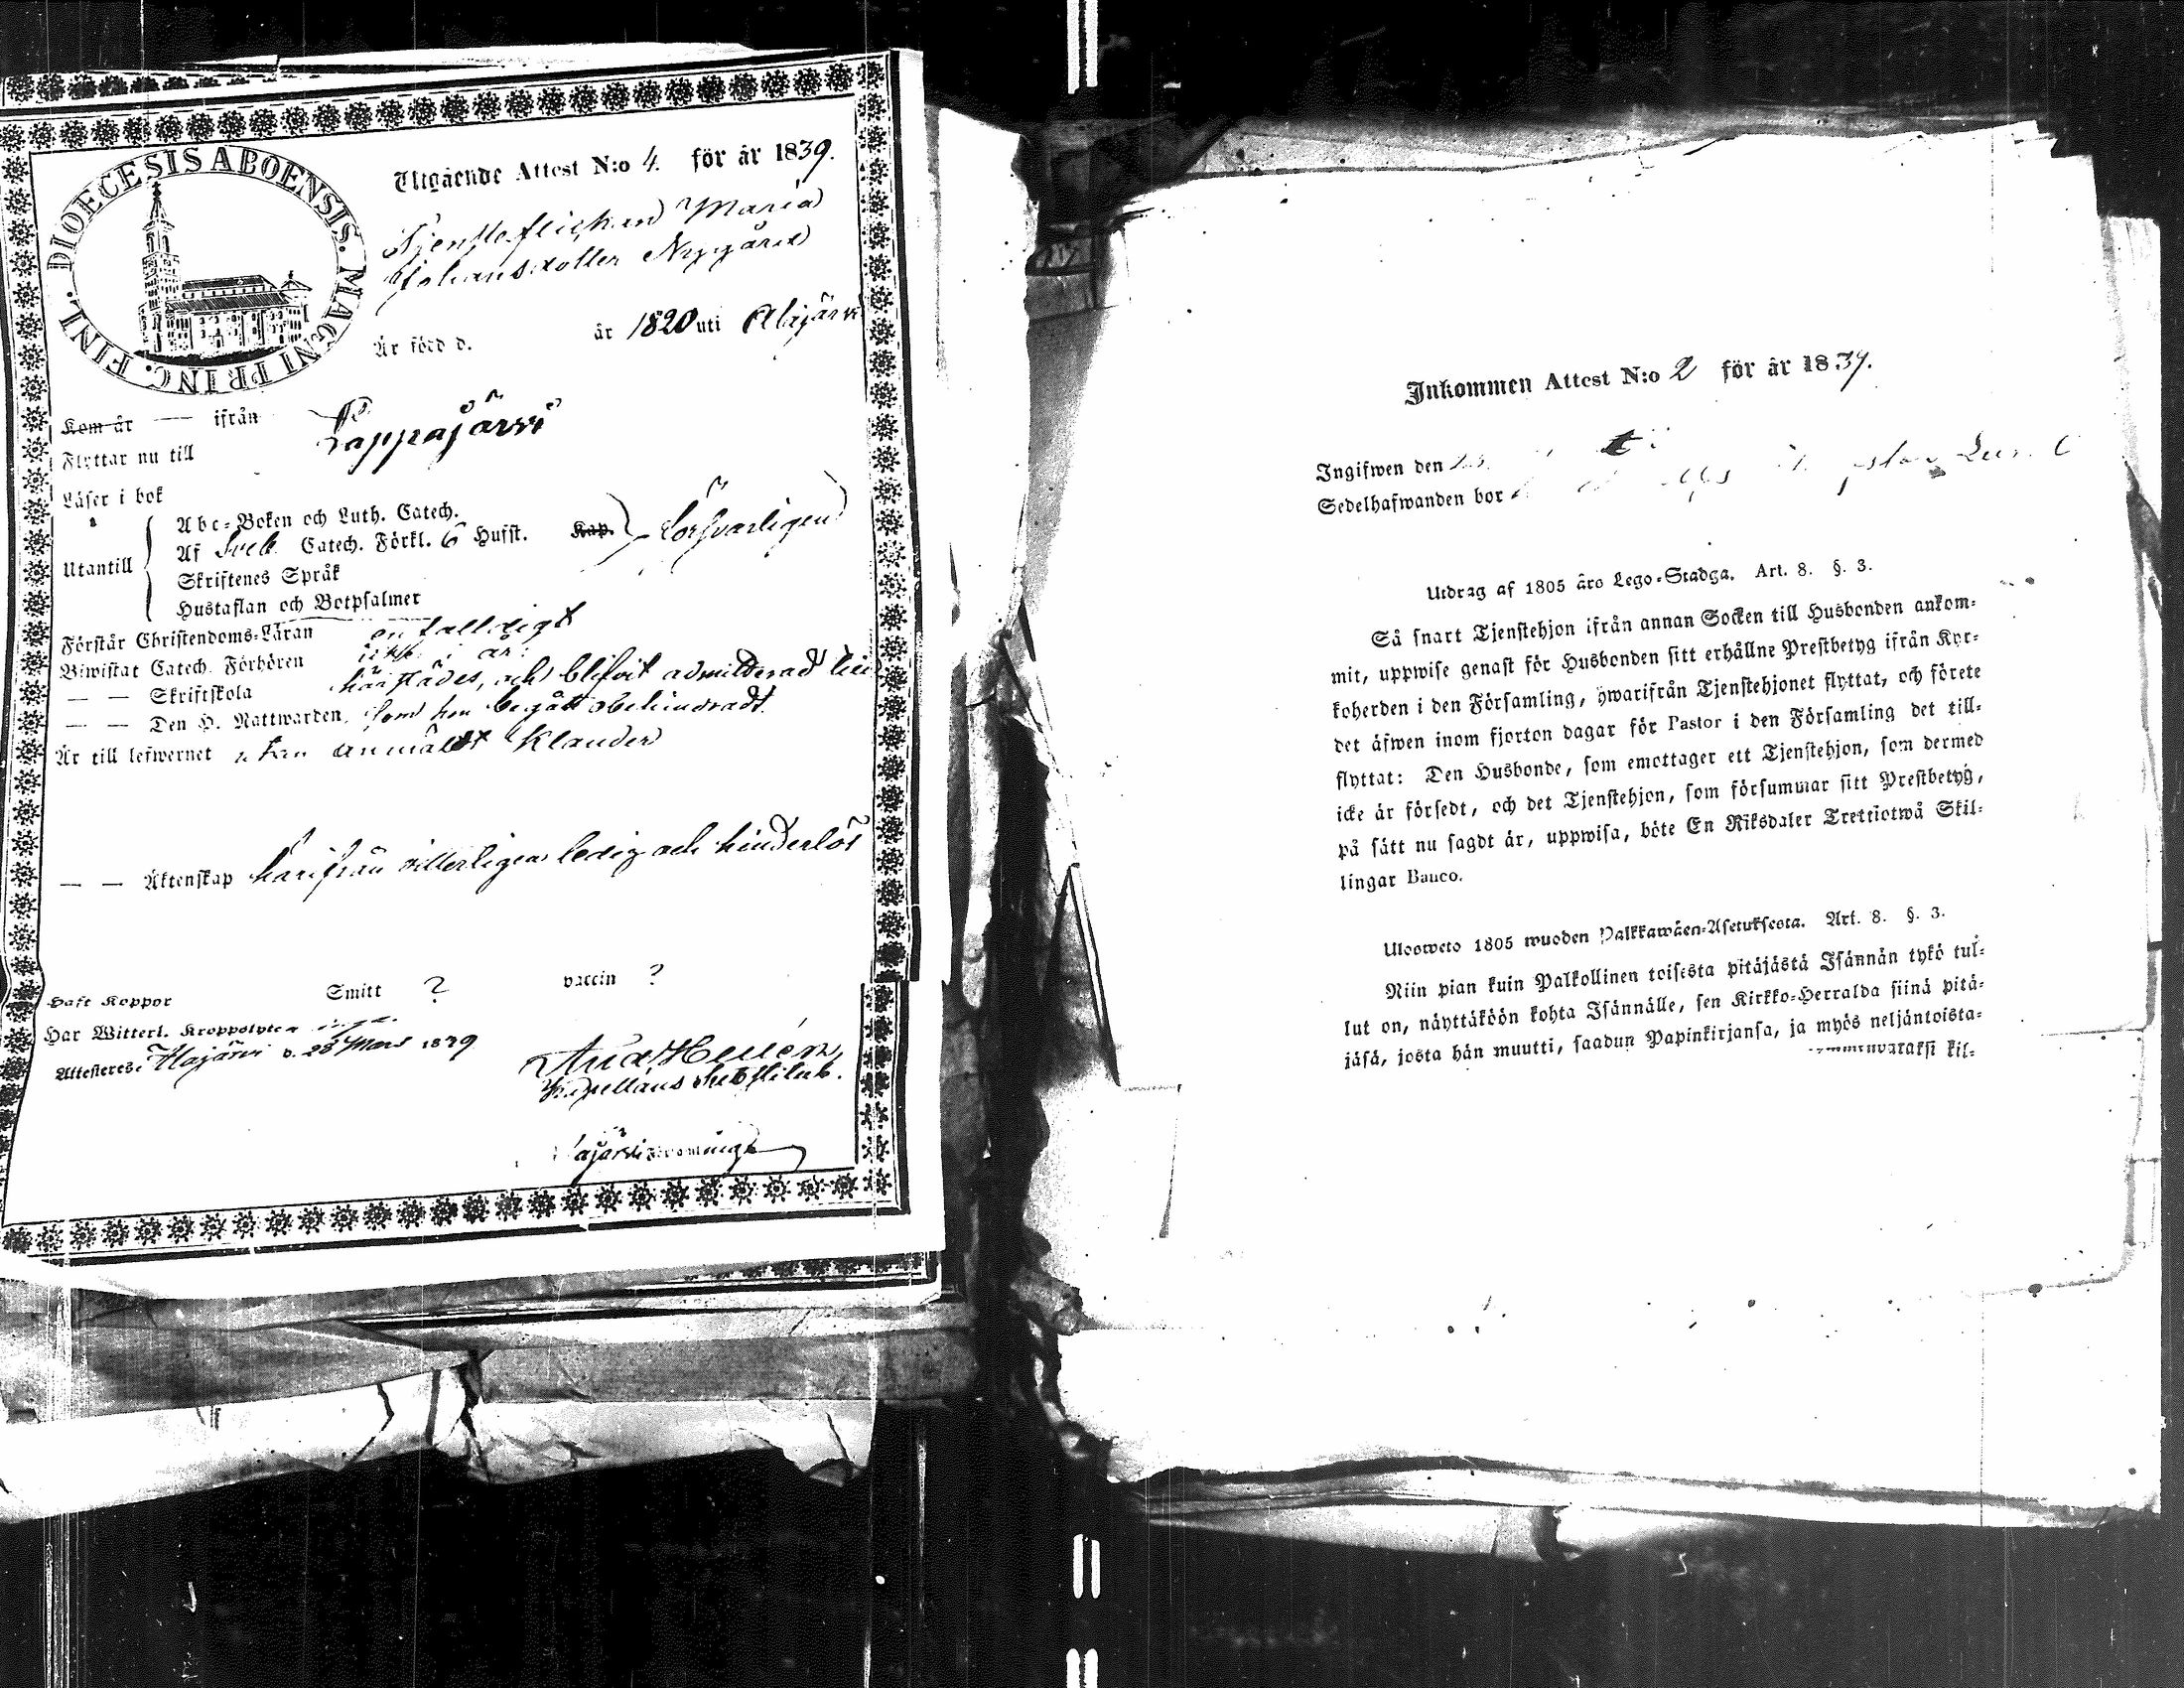 DIOECESIS ABOENSIS. MAGNI PRINC. FINL.
Utgående Attest N:o 4. för år 1839.
Tjensteflickan Maria
Johansdotter Nygård
Är född d. år 1820 uti Alajärvi
Kom år — ifrån
Flyttar nu till Lappajärvi
Läser i bok
Abc-Boken och Luth. Catech.
Utantill Af Sveb. Catech. Förkl. 6 Hufst. Kap. försvarligen
Skriftenes Språk
Hustaflan och Botpsalmer
Förstår Christendoms-Läran enfalldigt
Biwistat Catech. Förhören i år
— — Skriftskola härstädes, och blifvit admitterad till
— — Den H. Nattwarden, som hon begått obehindradt.
Är till lefwernet utan anmäldt klander
— — Äktenskap härifrån vitterligen ledig och hinderlös
Haft Koppor Smitt ? vaccin ?
Har Witterl. Kroppslyten inga.
Attesteras. Alajärvi d. 28 Mars 1839
And. Helén,
Kapellans Substitut.
Inkommen Attest N:o 2 för år 1839.
Ingifwen den
Sedelhafwanden bor
Utdrag af 1805 års Lego-Stadga. Art. 8. §. 3.
Så snart Tjenstehjon ifrån annan Socken till Husbonden ankom-
mit, uppwise genast för Husbonden sitt erhållne Prestbetyg ifrån Kyr-
koherden i den Församling, hwarifrån Tjenstehjonet flyttat, och förete
det äfwen inom fjorton dagar för Pastor i den Församling det till-
flyttat: Den Husbonde, som emottager ett Tjenstehjon, som dermed
icke är försedt, och det Tjenstehjon, som försummar sitt Prestbetyg,
på sätt nu sagdt är, uppwisa, böte En Riksdaler Trettiotwå Skil-
lingar Banco.
Ulosweto 1805 wuoden Palkkawäen-Asetuksesta. Art. 8. §. 3.
Niin pian kuin Palkollinen toisesta pitäjästä Isännän tykö tul-
lut on, näyttäköön kohta Isännälle, sen Kirkko-Herralda siinä pitä-
jäsä, josta hän muutti, saadun Papinkirjansa, ja myös neljäntoista-
kil-